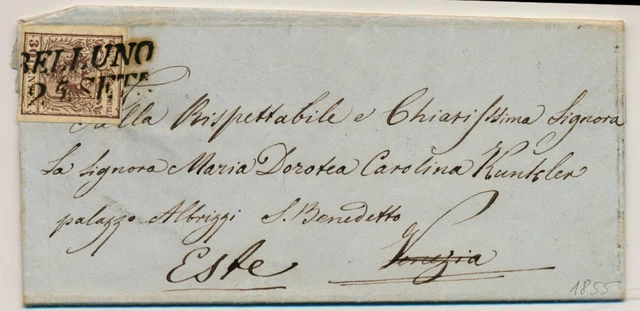 BELLUNO
25 SETE
Alla Rispettabile e Chiarissima Signora
La Signora Maria Dorotea Carolina Künkler
palazzo Albrizzi S. Benedetto
Este Venezia
1855